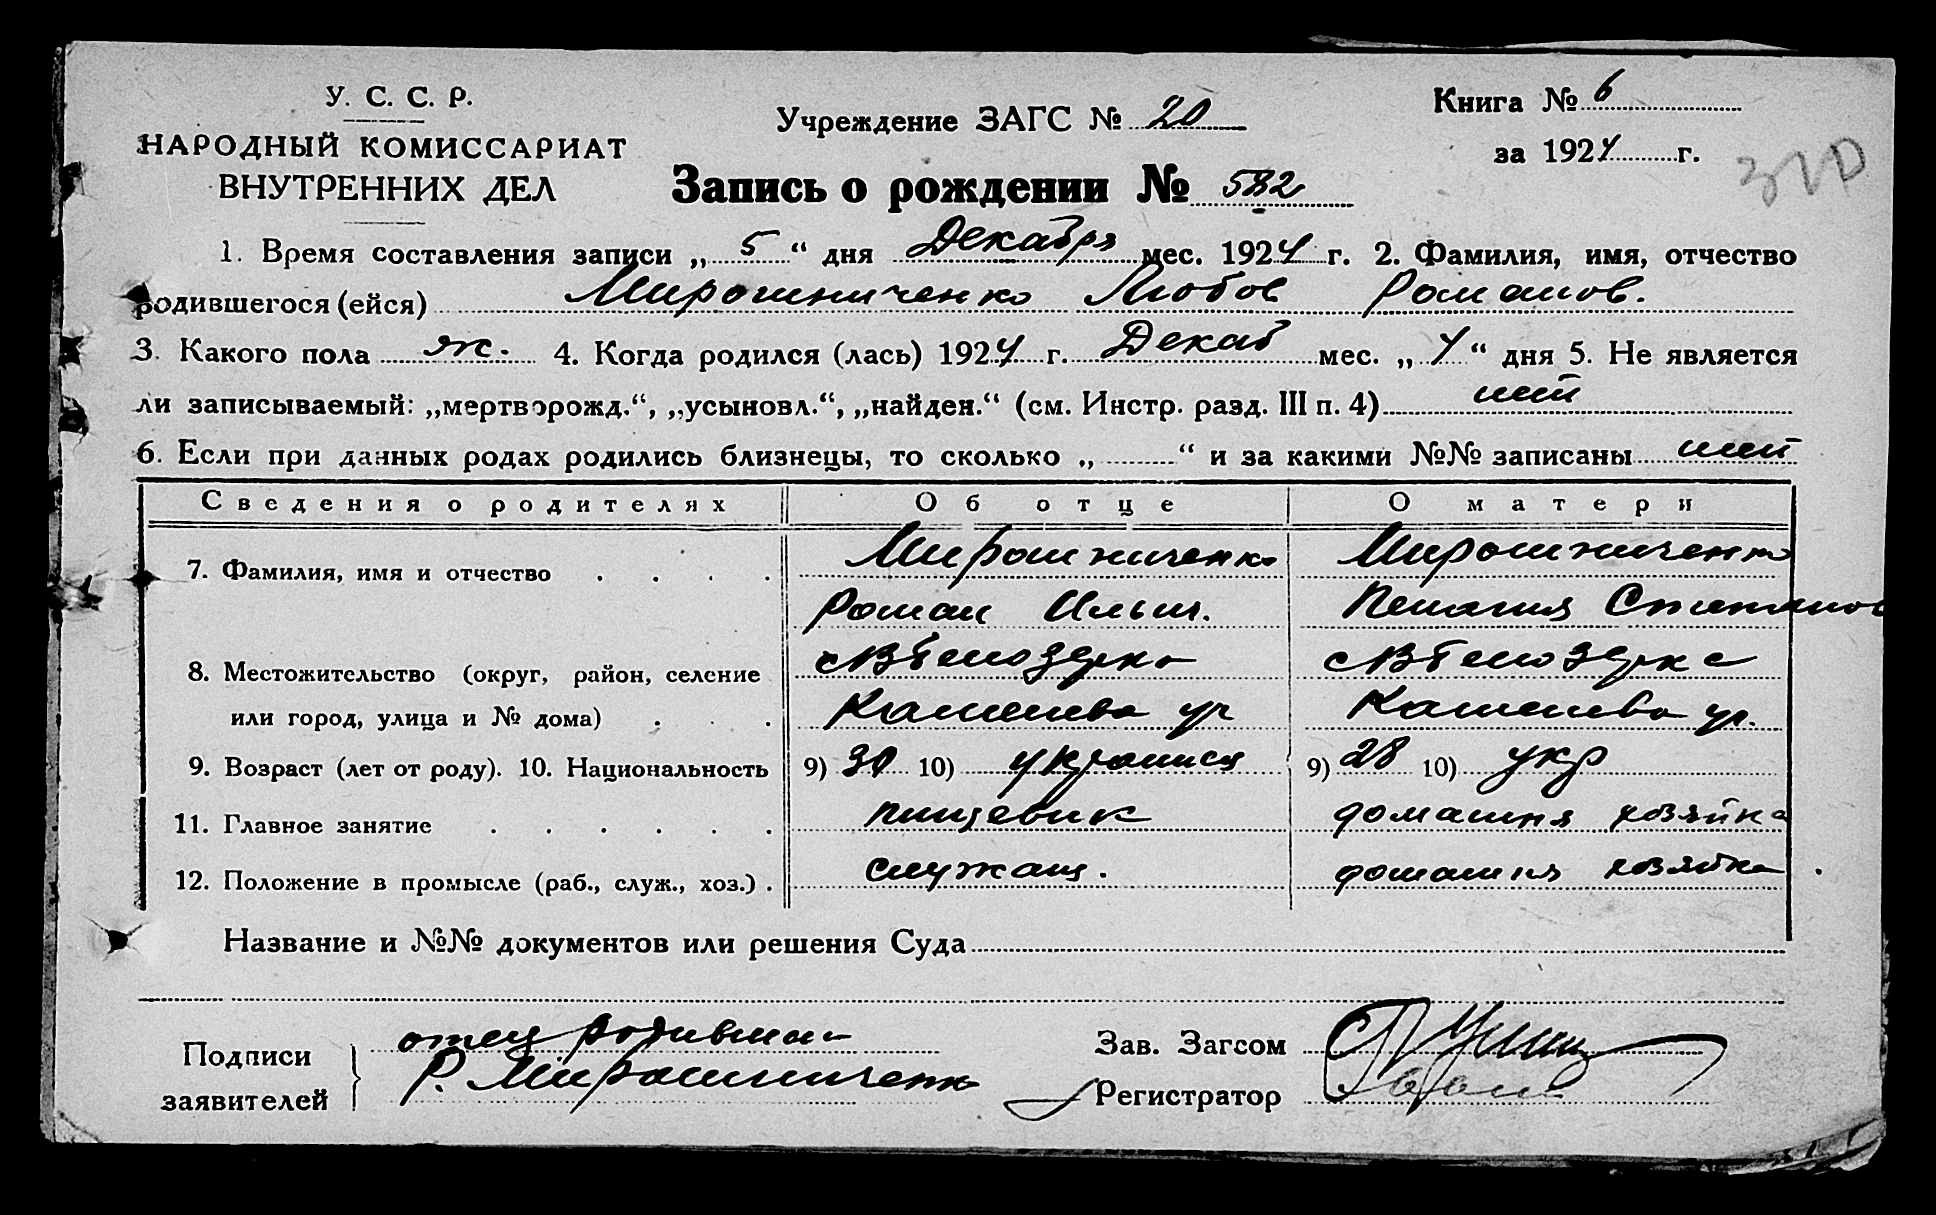 У. С. С. Р.
НАРОДНЫЙ КОМИССАРИАТ
ВНУТРЕННИХ ДЕЛ
Учреждение ЗАГС № 20
Книга № 6
за 1924 г.
310
Запись о рождении № 582
1. Время составления записи „ 5 “ дня Декабря мес. 1924 г. 2. Фамилия, имя, отчество
родившегося (ейся) Мирошниченко Любов Романов.
3. Какого пола ж. 4. Когда родился (лась) 1924 г. Декаб мес. „ 4 “ дня 5. Не является
ли записываемый: „мертворожд.“, „усыновл.“, „найден.“ (см. Инстр. разд. III п. 4) нет
6. Если при данных родах родились близнецы, то сколько „ “ и за какими №№ записаны нет
Сведения о родителях Об отце О матери
7. Фамилия, имя и отчество Мирошниченко Мирошниченко
Роман Ильич. Пелагия
8. Местожительство (округ, район, селение
или город, улица и № дома) ул ул.
9. Возраст (лет от роду). 10. Национальность 9) 30 10) украинец 9) 28 10) укр
11. Главное занятие пищевик домашня хозяйка
12. Положение в промысле (раб., служ., хоз.) служащ. домашня хозяйка
Название и №№ документов или решения Суда
Подписи
заявителей
отец
Р. Мирошниченко
Зав. Загсом
Регистратор